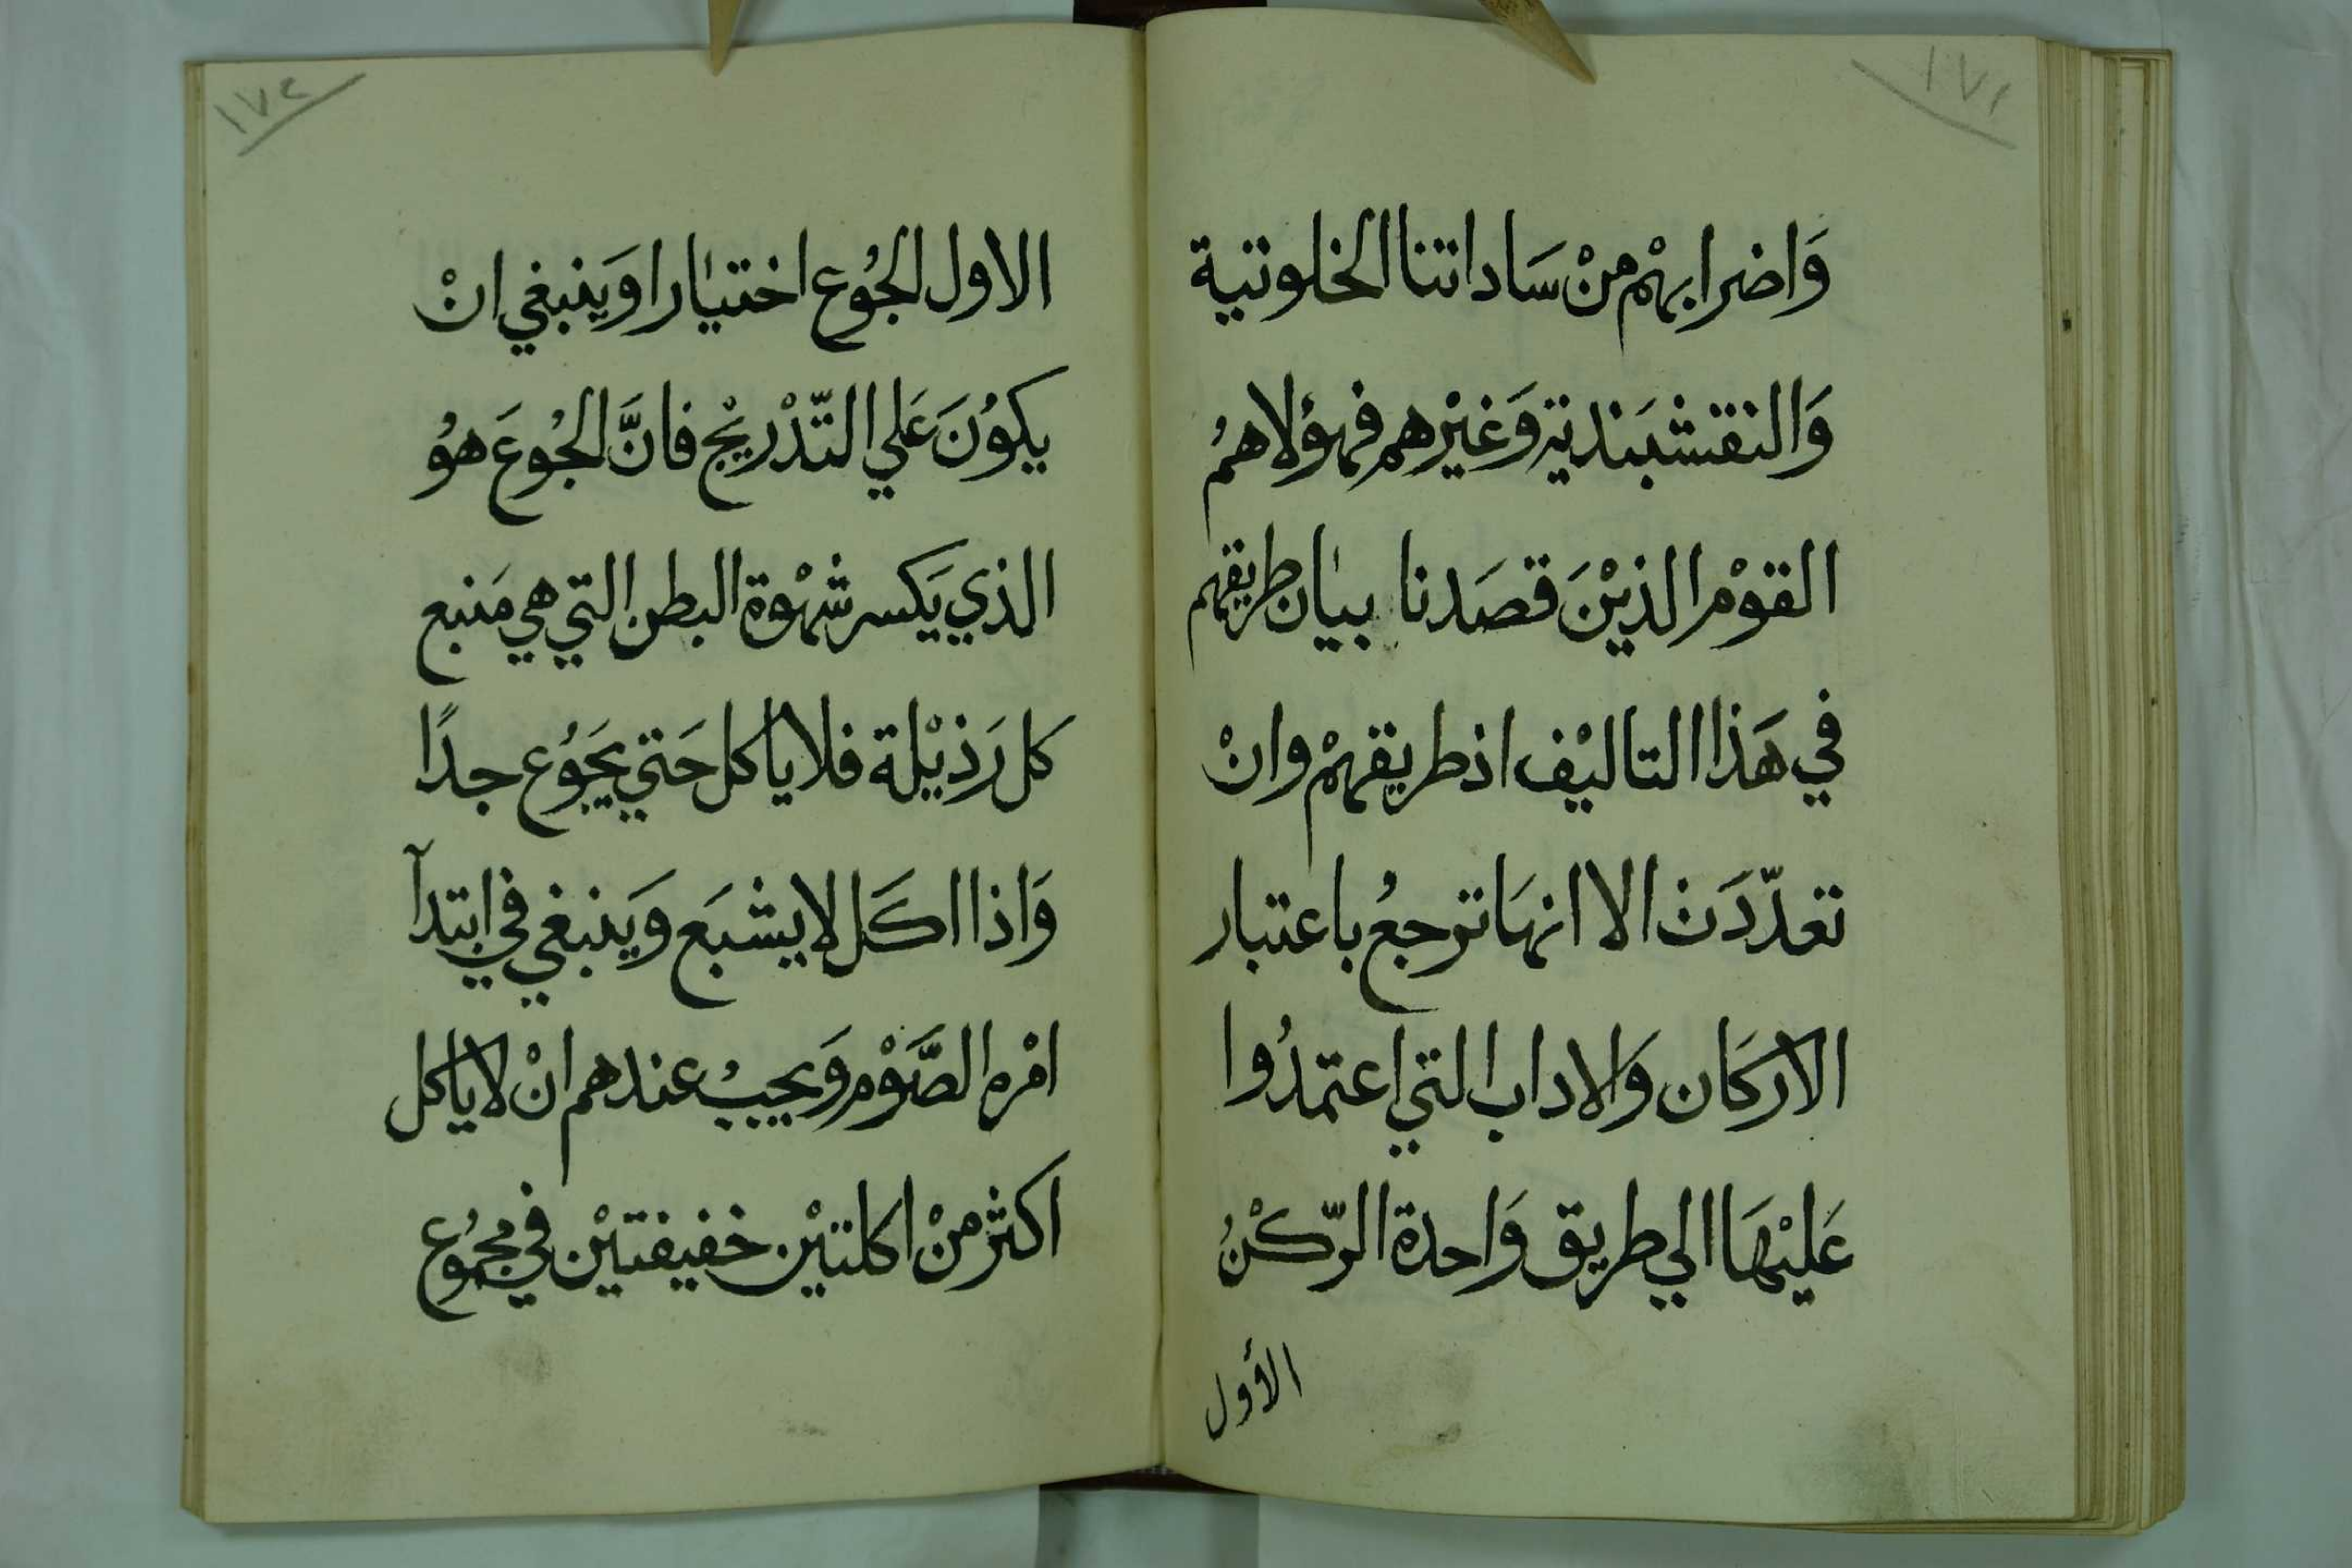 ١٧١
وَاضرابهْم منْ سَاداتنا الخلوتية
وَالنقشبَندية وَغيْرهم فهؤلاهمُ
القوْم الذيْنَ قصَدنا بيان طريقهم
في هَذا التاليْف اذ طريقهمْ وانْ
تعدّدَت الا انهَا ترجعُ باعتبار
الاركَان وَالاداب التي اعتمدُوا
عَليْهَا الي طريق وَاحدة الرّكْنُ
الأول
١٧٢
الاول الجُوع اختيارا وَينبغي انْ
يكوُنَ عَلي التّدْريْج فانَّ الجُوعَ هوُ
الذي يَكسر شهْوة البطن التي هي مَنبع
كل رَذيْلة فلا ياكل حَتي يَجوُع جدًا
وَاذا اكَل لا يشبَع وَينبغي في ابتدآ
امْره الصَّوْم وَيجبُ عندهم انْ لا ياكل
اكثر منْ اكلتيْن خفيفتيْن في مجمُوع